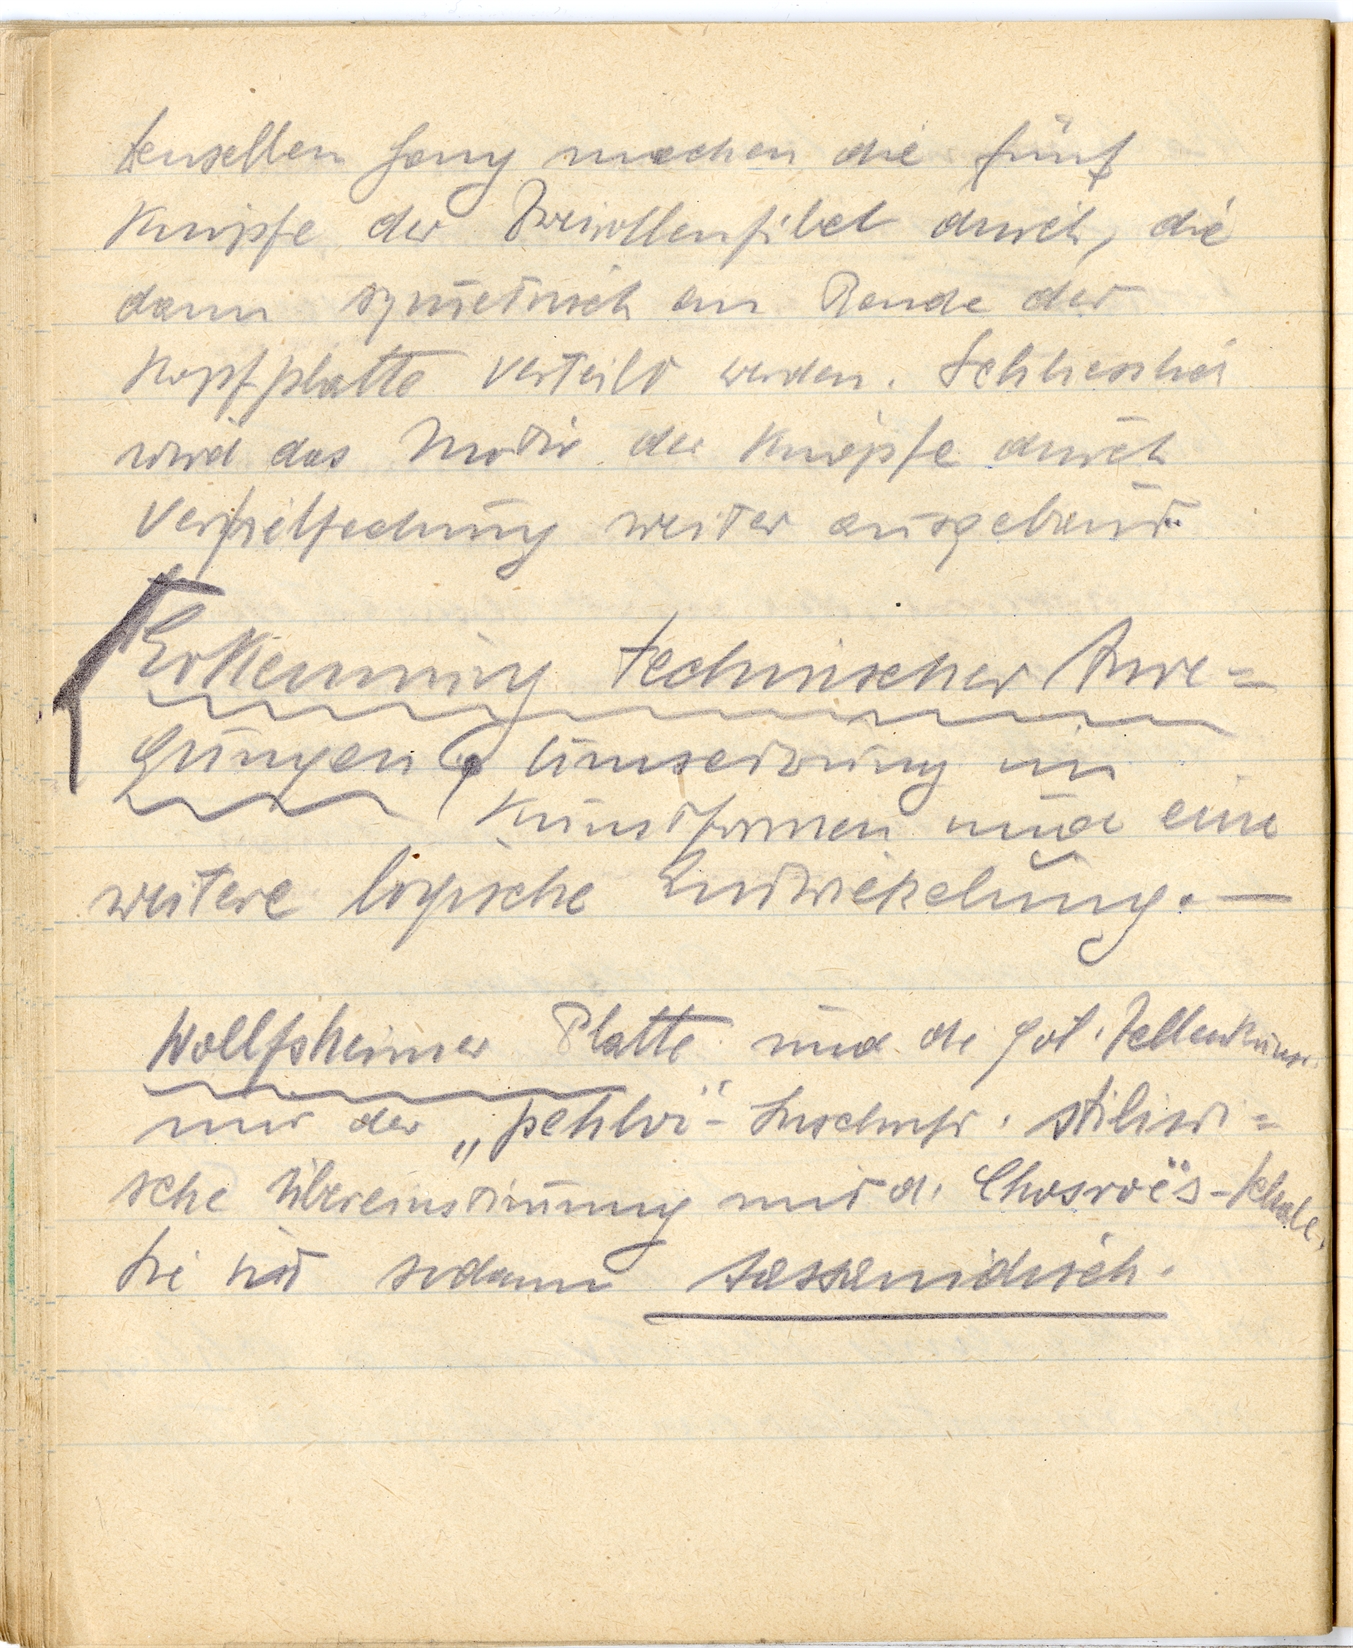 denselben Gang machen die fünf
Knöpfe der Zweirollenfibel durch, die
dann symetrisch am Rande der
Kopfplatte verteilt werden. Schliesslich
wird das Motiv der Knöpfe durch
Verfielfachung weiter ausgebaut.
Erkennung technischer Anre=
gungen, Umsetzung in
Kunstformen und eine
weitere logische Entwickelung. —
Wolfsheimer Platte und die got. Zellenkunst
mit der „pehlvi"- Inschrift. stilisti=
sche Übereinstimmung mit d. Chosroës-Schale.
Sie ist sodann sassanidisch.